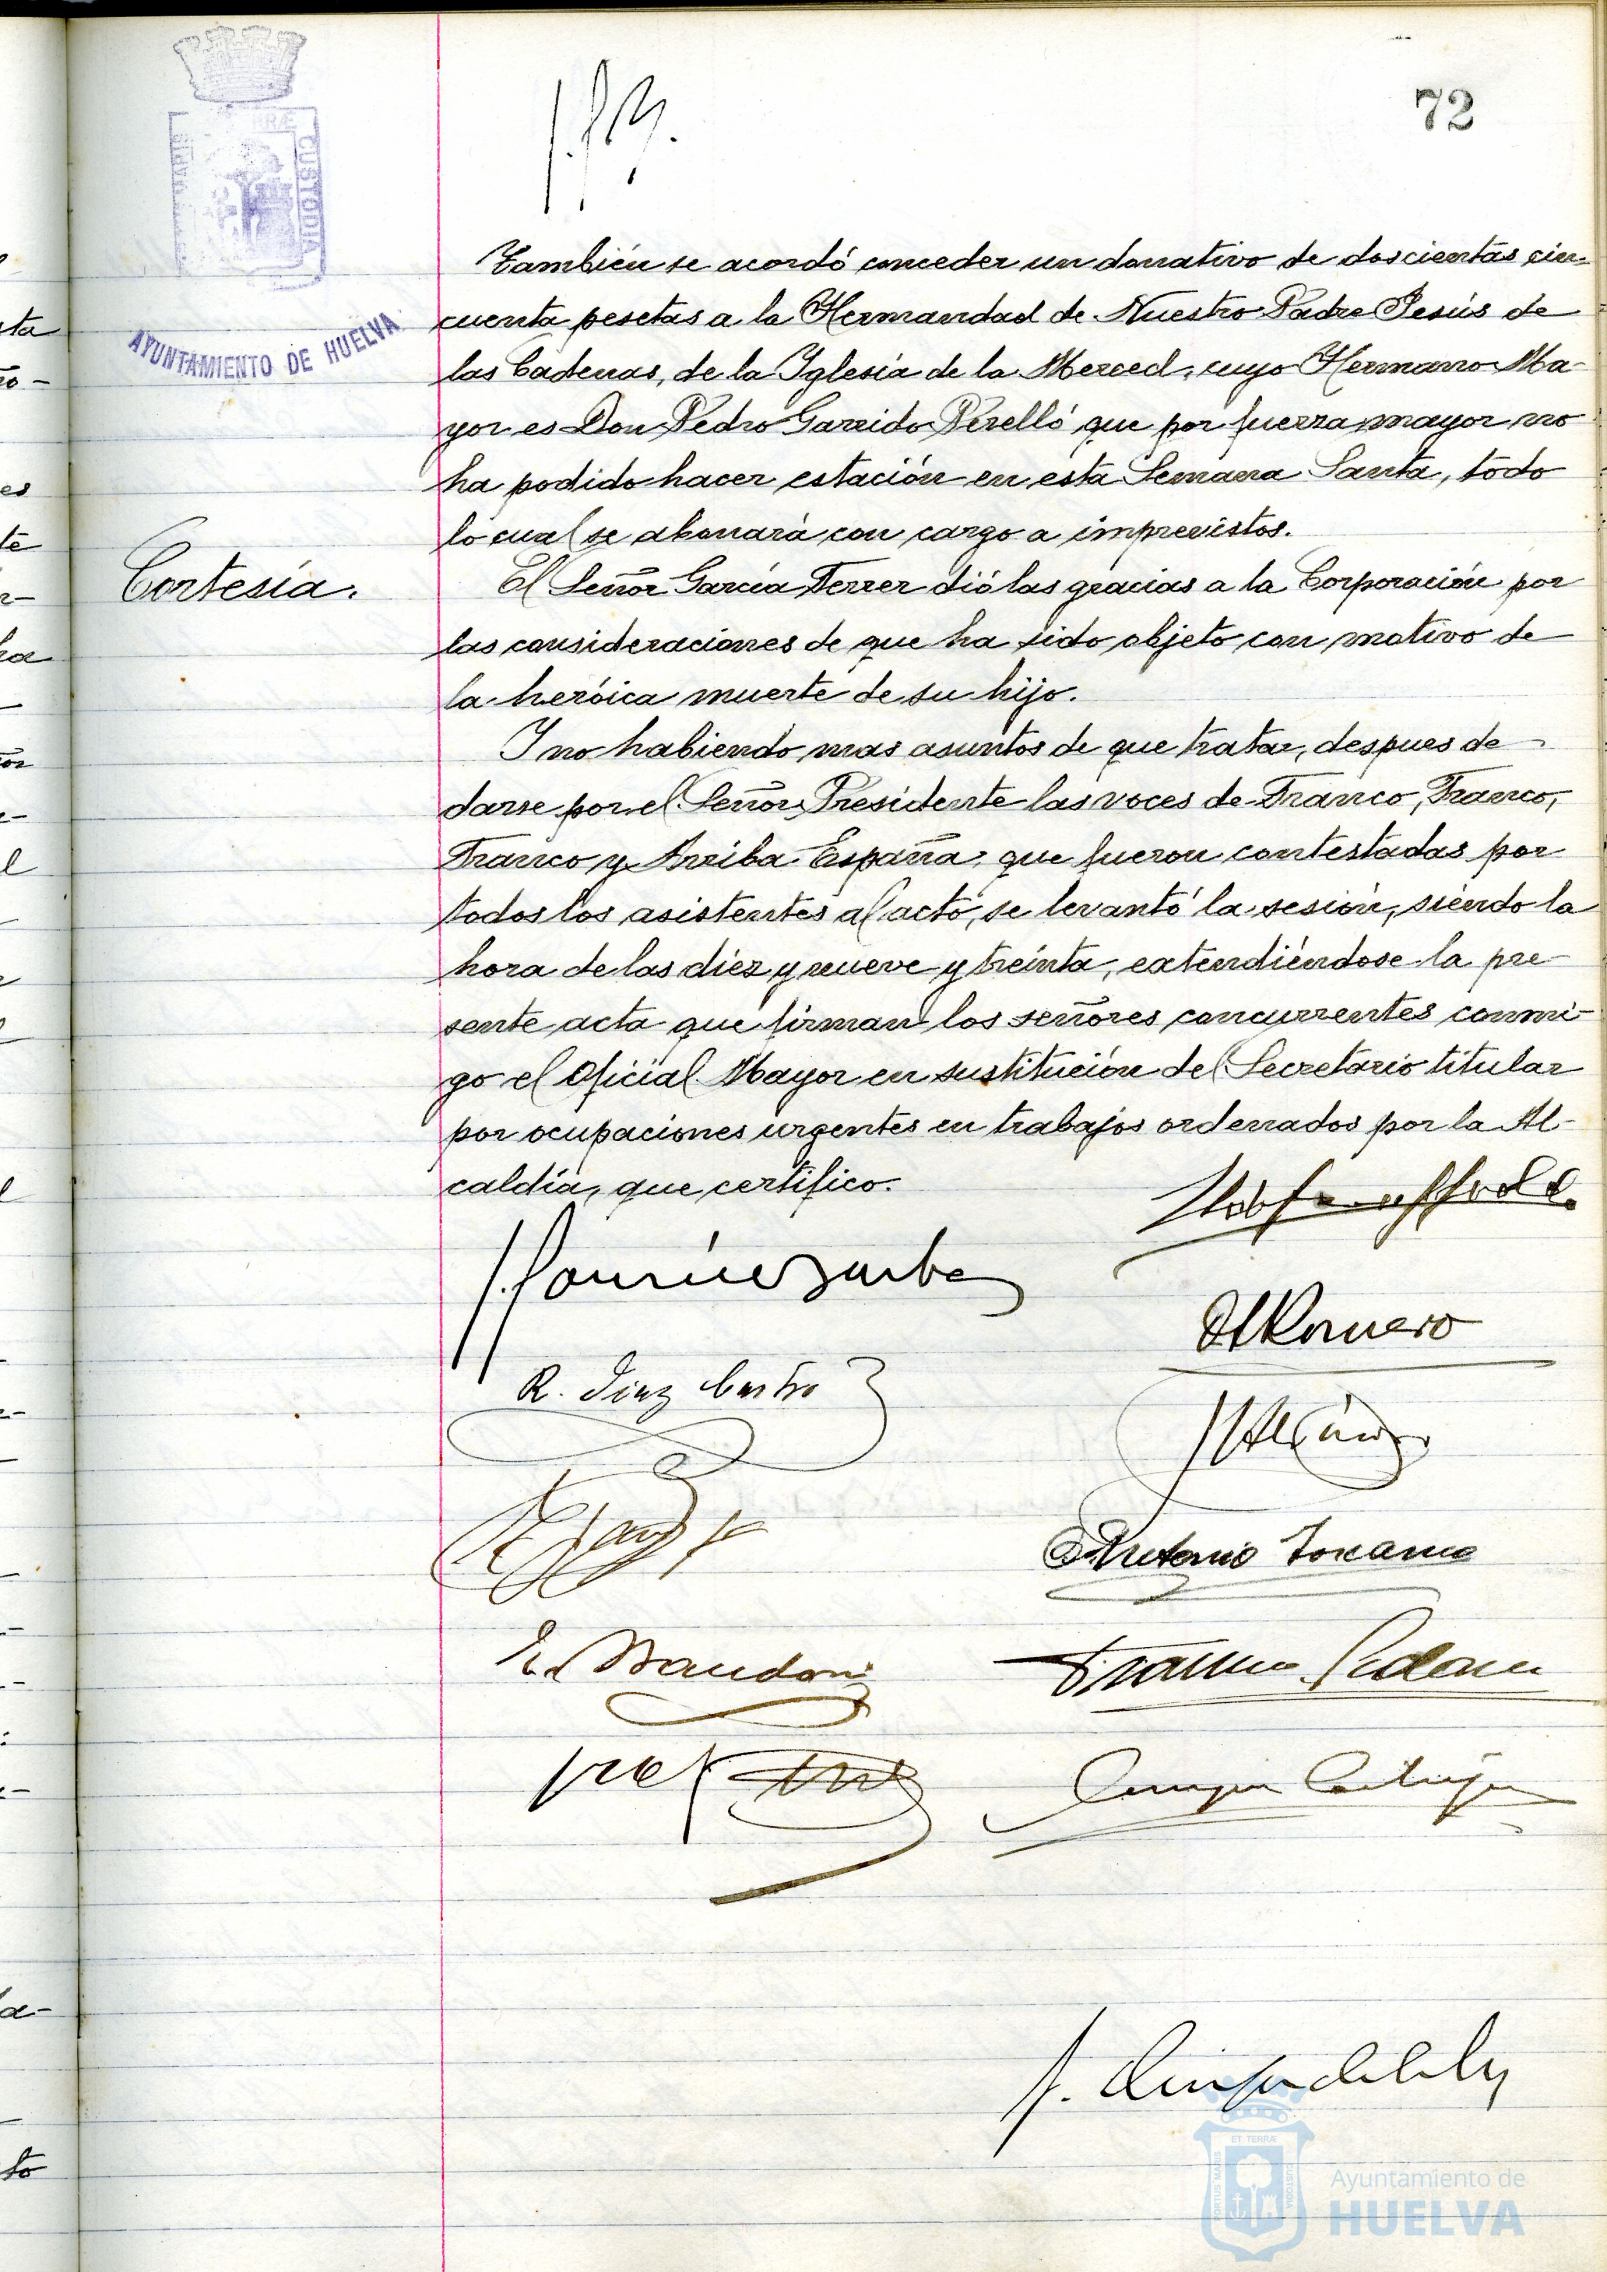 72
TERRÆ
CUSTODIA
AYUNTAMIENTO DE HUELVA
También se acordó conceder un donativo de doscientas cin-
cuenta pesetas a la Hermandad de Nuestro Padre Jesús de
las Cadenas, de la Iglesia de la Merced, cuyo Hermano Ma-
yor es Don Pedro Garrido Perelló que por fuerza mayor no
ha podido hacer estación en esta Semana Santa, todo
lo cual se abonará con cargo a imprevistos.
Cortesía.
El Señor García Ferrer dió las gracias a la Corporación por
las consideraciones de que ha sido objeto con motivo de
la heróica muerte de su hijo.
Y no habiendo mas asuntos de que tratar, despues de
darse por el Señor Presidente las voces de Franco, Franco,
Franco y Arriba España, que fueron contestadas por
todos los asistentes al acto, se levantó la sesión, siendo la
hora de las diez y nueve y treinta, extendiéndose la pre-
sente acta que firman los señores concurrentes conmi-
go el Oficial Mayor en sustitución del Secretario titular
por ocupaciones urgentes en trabajos ordenados por la Al-
caldía, que certifico.
Romero
R. Diaz Castro
Antonio Toscano
ET TERRÆ
PORTUS MARIS
CUSTODIA
Ayuntamiento de
HUELVA